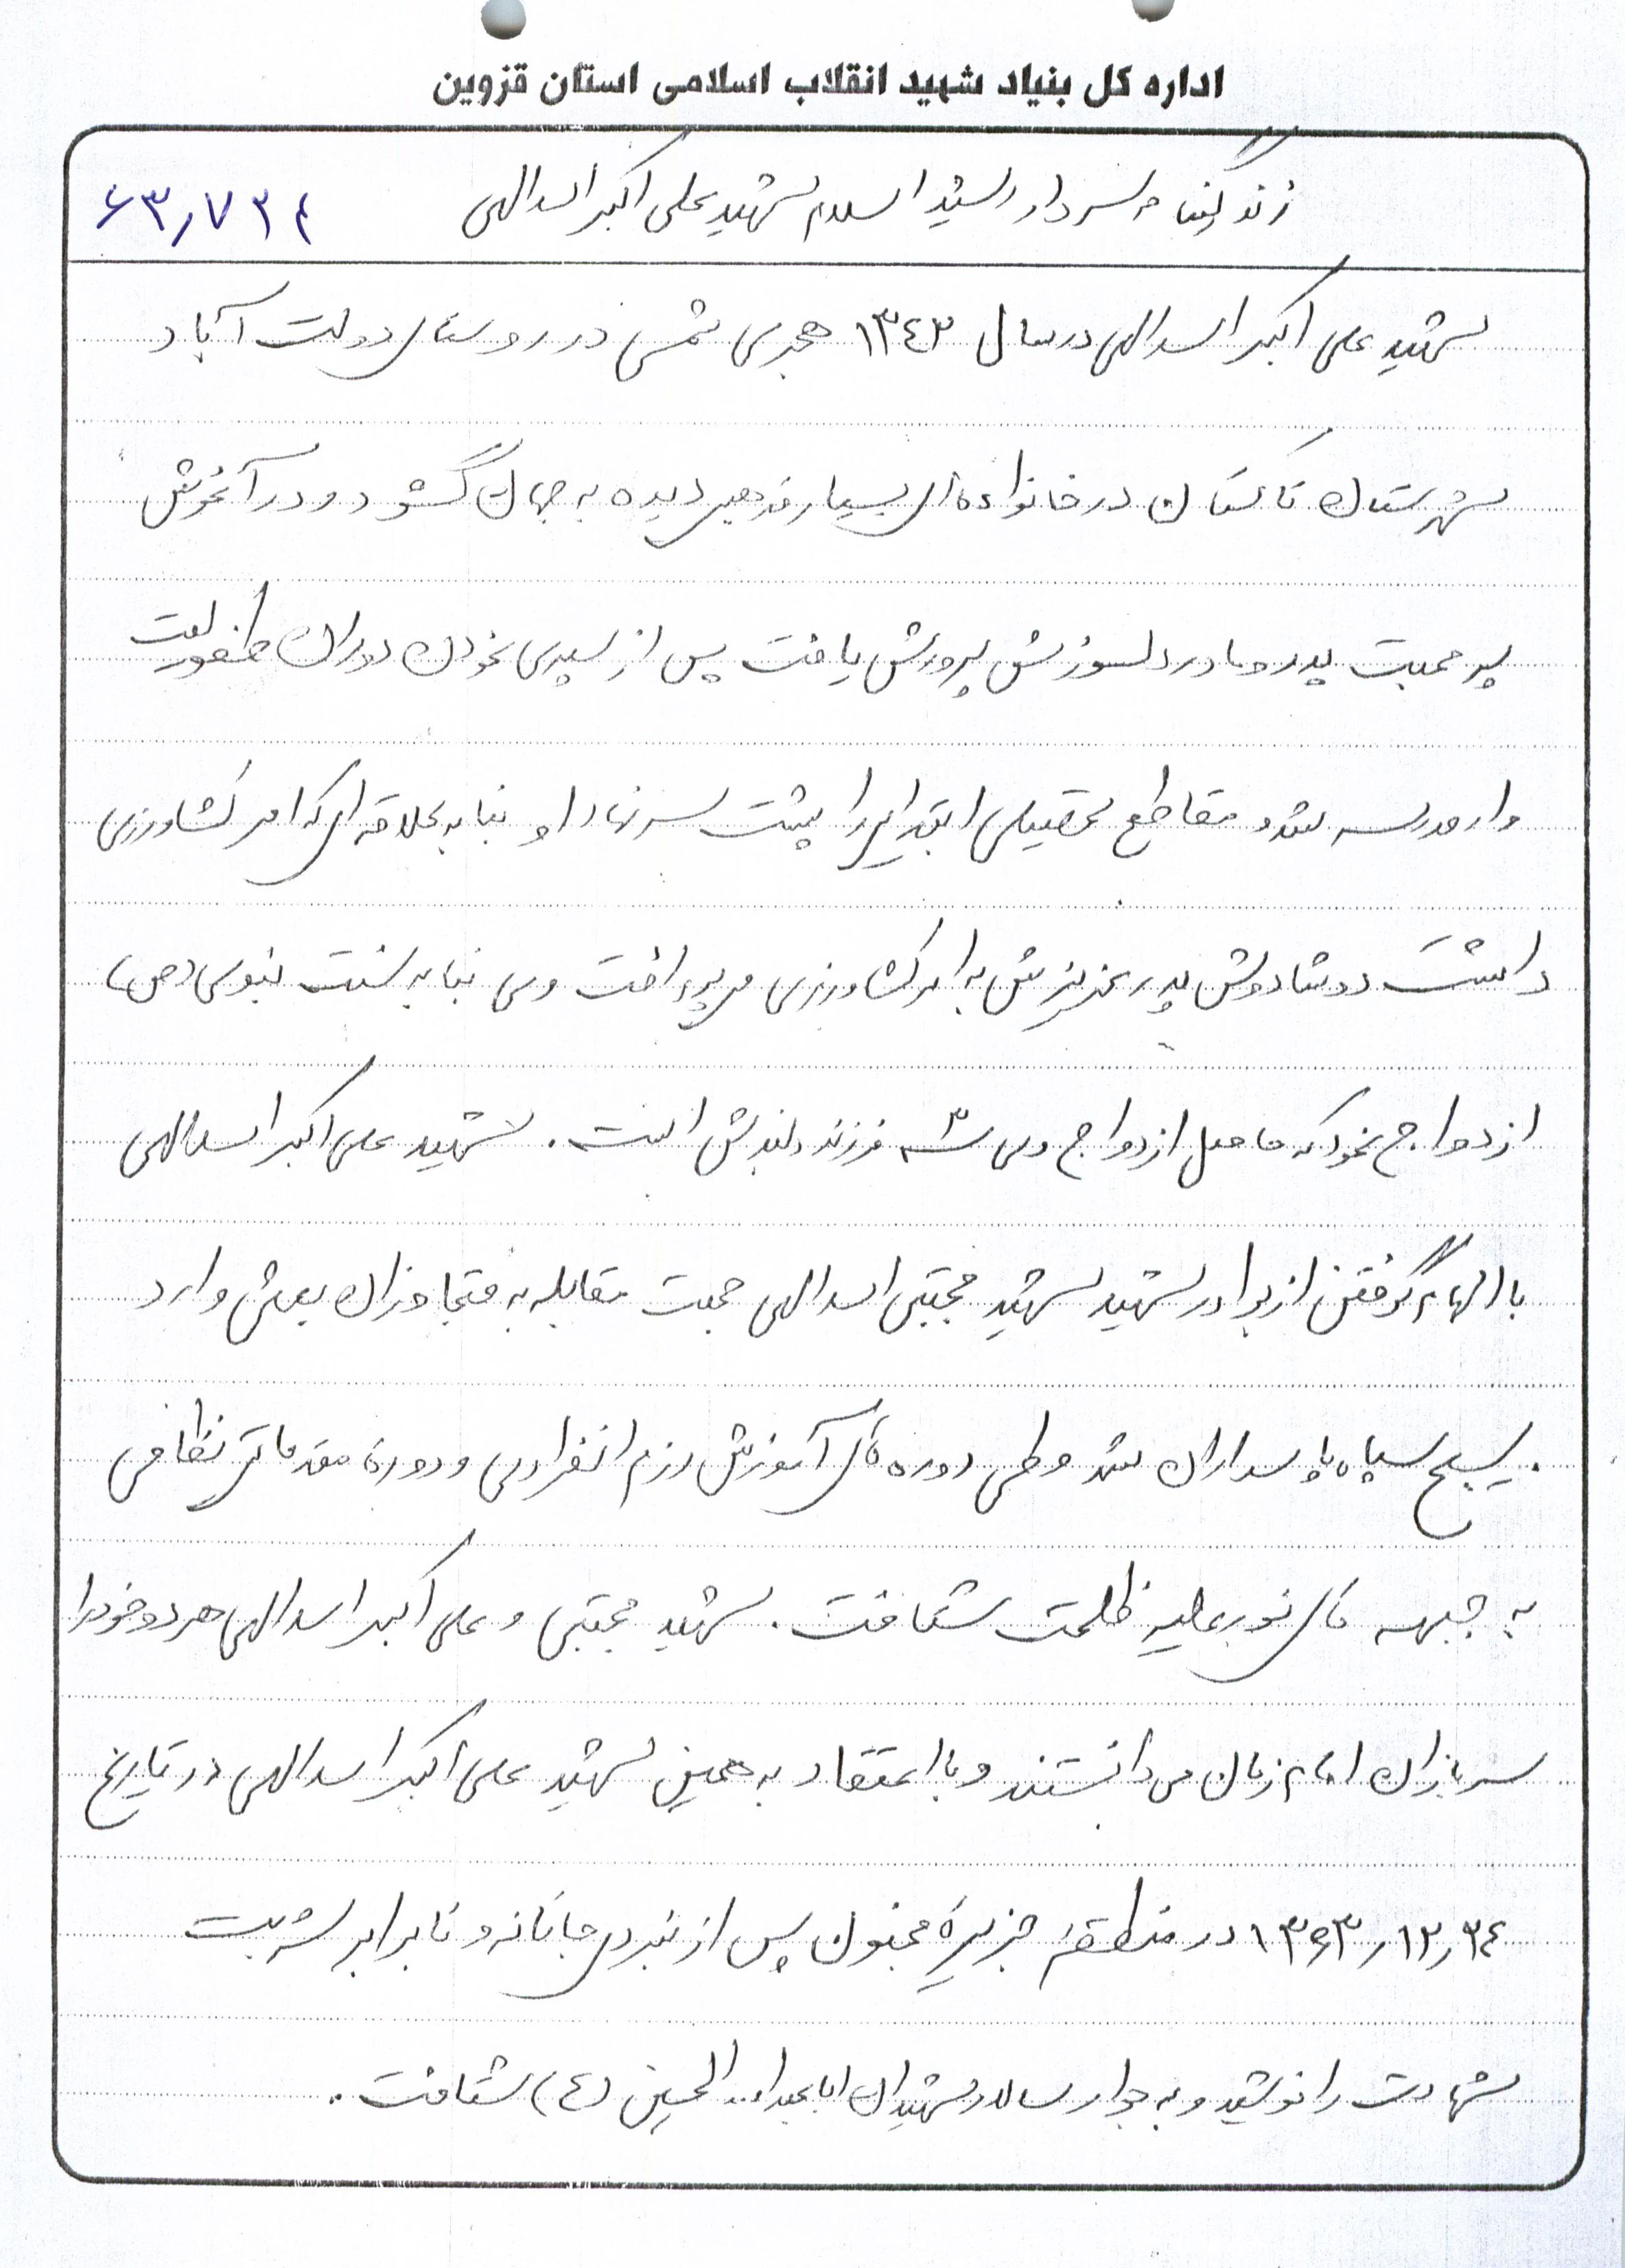 اداره کل بنیاد شهید انقلاب اسلامی استان قزوین
زندگینامه سردار رشید اسلام شهید علی اکبر اسدالهی
۶۳,۷۲۴
شهید علی اکبر اسدالهی در سال ۱۳۴۳ هجری شمسی در روستای دولت آباد
شهرستان تاکستان در خانواده ای بسیار مذهبی دیده به جهان گشود و در آغوش
پر محبت پدر و مادر دلسوزش پرورش یافت پس از سپری نمودن دوران طفولیت
وارد مدرسه شد و مقاطع تحصیلی ابتدایی را پشت سر نهاد او بنا به علاقه ای که امر کشاورزی
داشت دوشادوش پدر عزیزش به امر کشاورزی می پرداخت وی بنا به سنت نبوی (ص)
ازدواج نمود که حاصل ازدواج وی ۳ سه فرزند دلبندش است. شهید علی اکبر اسدالهی
با الهام گرفتن از برادر شهید شهید مجتبی اسدالهی جهت مقابله به متجاوزان بعثی وارد
بسیج سپاه پاسداران شد و طی دوره های آموزش رزم انفرادی و دورهٔ مقدماتی نظامی
به جبهه های نور علیه ظلمت شتافت. شهید مجتبی و علی اکبر اسدالهی هر دو خود را
سربازان امام زمان می دانستند و با اعتقاد به همین شهید علی اکبر اسدالهی در تاریخ
۱۳۶۳,۱۲,۲۴ در منطقهٔ جزیرهٔ مجنون پس از نبردی جانانه و نابرابر شربت
شهادت را نوشید و به جوار سالار شهیدان اباعبدالله الحسین (ع) شتافت.